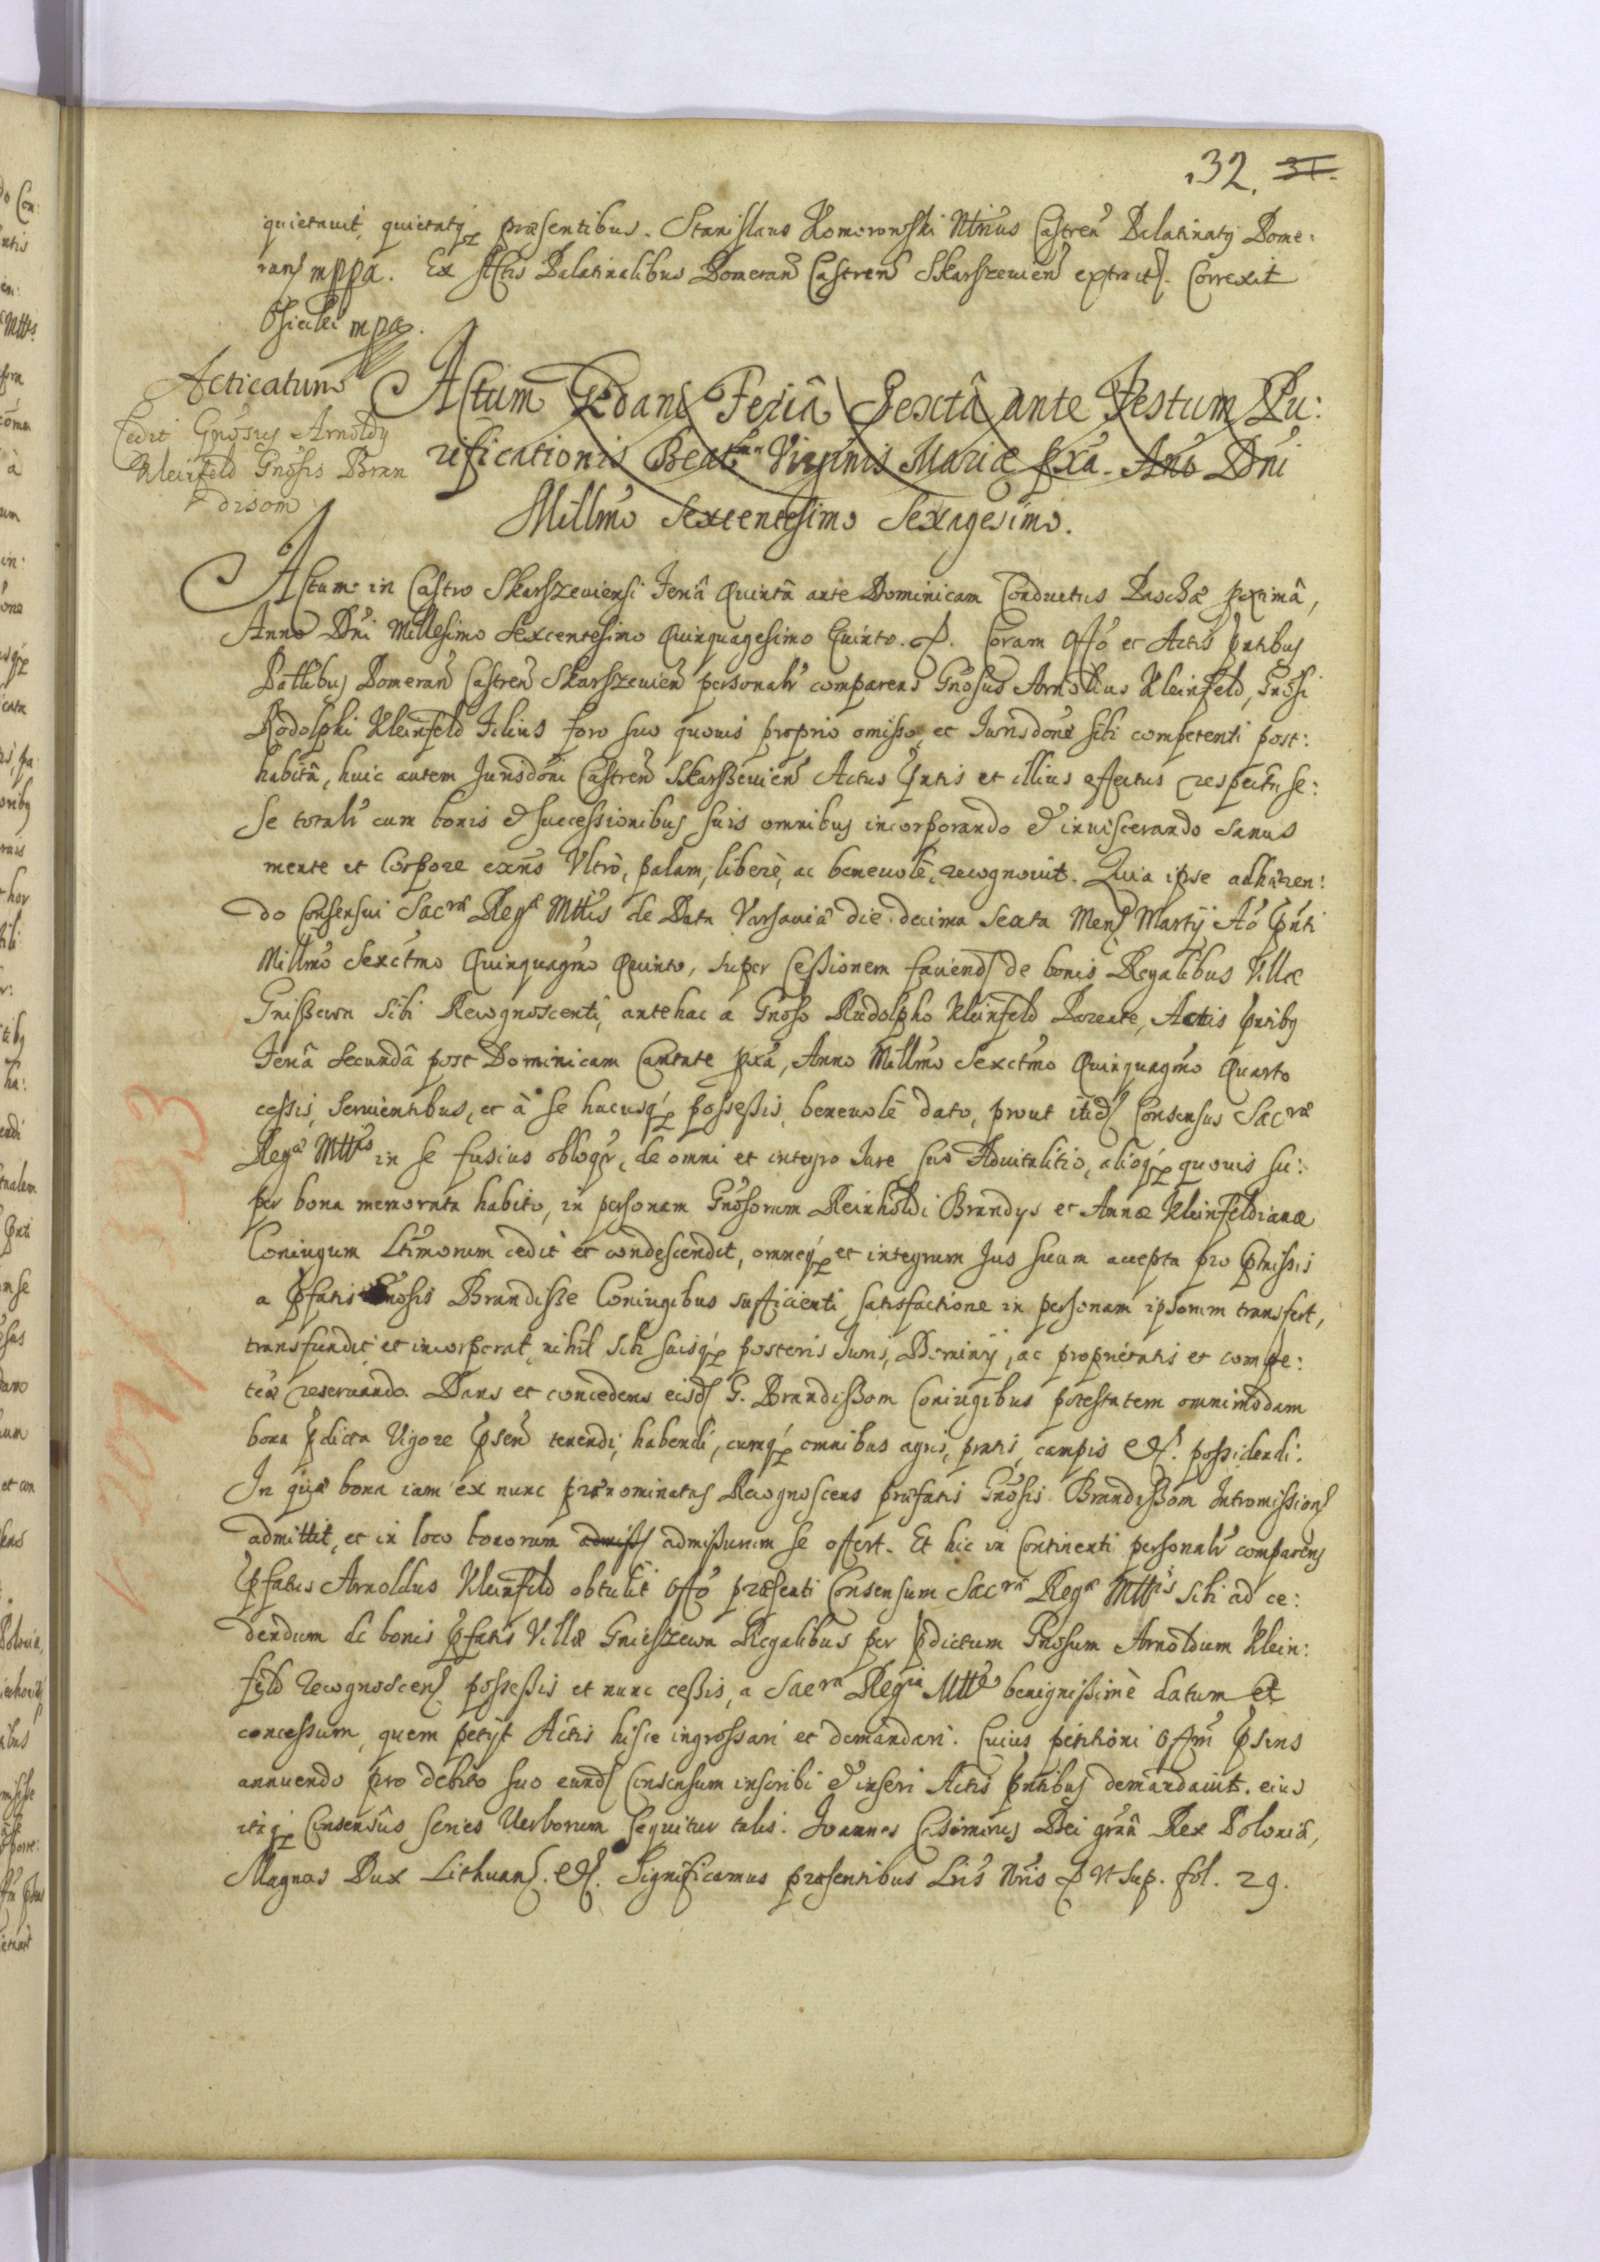 32. 31.
quietauit, quietatq̃ præsentibus. Stanislaus Komorowski Ntrius Castreñ Palatinatȝ Pome:
ranꝭ mppa. Ex Actis Palatinalibus Pomerañ Castreñ Skarszewieñ extractꝭ. Correxit
mpa.
Acticatum
Cedit Gnosus Arnoldȝ
Kleinfeld Gnosis Bran
disom
Actum Gedani Feriâ Sextâ ante Festum Pu:
rificationis Beatæ Virginis Mariæ pxâ. Año Dñi
Millmo Sexcentesimo Sexagesimo.
Actum in Castro Skarszeuiensi Feriâ Quintâ ante Dominicam Conductus Paschæ proximâ,
Anno Dñi Millesimo Sexcentesimo Quinquagesimo Quinto. Coram Offo et Actis pntibus
Patlibus Pomerañ Castreñ Skarszewieñ personalr comparens Gnosus Arnoldus Kleinfeld, Gnosi
Rodolphi Kleinfeld Filius foro suo quouis proprio omisso, et Jurisdõne sibi competenti post:
habitâ, huic autem Jurisdõni Castreñ Skarszeuieñ Actus pntis et illius effectus respectu se:
se totalr cum bonis et successionibus suis omnibus incorporando et inuiscerando sanus
mente et Corpore exñs Vltrò, palam, liberè, ac beneuolè, recognouit. Quia ipse adhæren:
do Consensui Sacræ Regæ Mttis de Data Varsauiæ die decima Sexta Menꝭ Martij Aõ pnti
Millmo Sexctmo Quinquagmo Quinto, super Cessionem faciendꝭ de bonis Regalibus Villæ
Gnissewa sibi Recognoscenti, antehac a Gnoso Rudolpho Kleinfeld Parente, Actis pntibȝ
Feriâ Secundâ post Dominicam Cantate pxâ, Anno Millmo Sexctmo Quinquagmo Quarto
cessis, seruientibus, et à se hucusq̃ possessis, beneuolè dato, prout itidꝭ Consensus Sacræ
Regæ Mttis in se fusius obloqr, de omni et integro Jure suo Aduitalitio, alioq̃ quouis su:
per bona memorata habito, in personam Gnosorum Reinholdi Brandys et Annæ Kleinfeldianæ
Coniugum Ltimorum cedit et condescendit, omneq̃ et integrum Jus suum accepta pro pmissis
a pfatis Gnosis Brandisse Coniugibus sufficienti satisfactione in personam ipsorum transfert,
transfundit, et incorporat, nihil sibi suisq̃ posteris Juris, Dominij, ac proprietatis et compe:
teñ reseruando. Dans et concedens eisdꝭ G. Brandissom Coniugibus potestatem omnimodam
bona pdicta Vigore pseñ tenendi, habendi, cumq̃ omnibus agris, pratis, campis etc. possidendi.
In quæ bona iam ex nunc prænominatus Recognoscens præfatis Gnosis Brandissom Intromissionꝭ
admittit, et in loco bonorum admissꝭ admissurum se offert. Et hic in Continenti personalr comparens
pfatus Arnoldus Kleinfeld obtulit Offo præsenti Consensum Sacræ Regæ Mttis sibi ad ce:
dendum de bonis pfatis Villæ Gnieszewa Regalibus per pdictum Gnosum Arnoldum Klein:
feld recognoscenꝭ possessis et nunc cessis, a Sacra Regia Mtte benignissimè datum et
concessum, quem petijt Actis hisce ingrossari et demandari. Cuius petitioni Offm psens
annuendo pro debito suo eundꝭ Consensum inscribi et inseri Actis pntibus demandauit. eius
itaq̃ Consensûs series Verborum sequitur talis. Joannes Casimirus Dei grãa Rex Poloniæ,
Magnus Dux Lithuanꝭ. etc. Significamus præsentibus Lris Nris Vt sup. fol. 29.